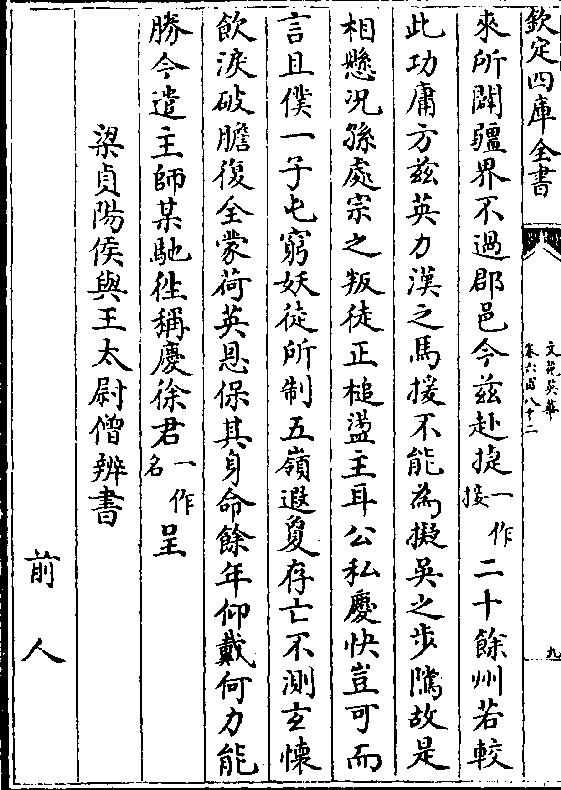 欽定四庫全書
文苑英華
卷六百八十二
九
來所闢疆界不過郡邑今兹赴捷一作接二十餘州若較
此功庸方兹英力漢之馬援不能為擬吳之步隲故是
相懸况孫處宗之叛徒正槌盪主耳公私慶快豈可而
言且僕一子屯窮妖徒所制五嶺遐夐存亡不測玄懐
飲淚破膽復全蒙荷英恩保其身命餘年仰戴何力能
勝今遣主師某馳徃稱慶徐君一作名呈
梁貞陽侯與王太尉僧辨書
前人